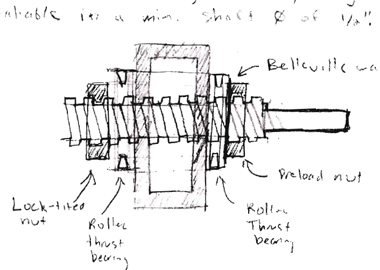 for a min. shaft Ø of 1/2".
Belleville
Preload nut
Lock-tited
nut
Roller
thrust
bearing
Roller
Thrust
bearing